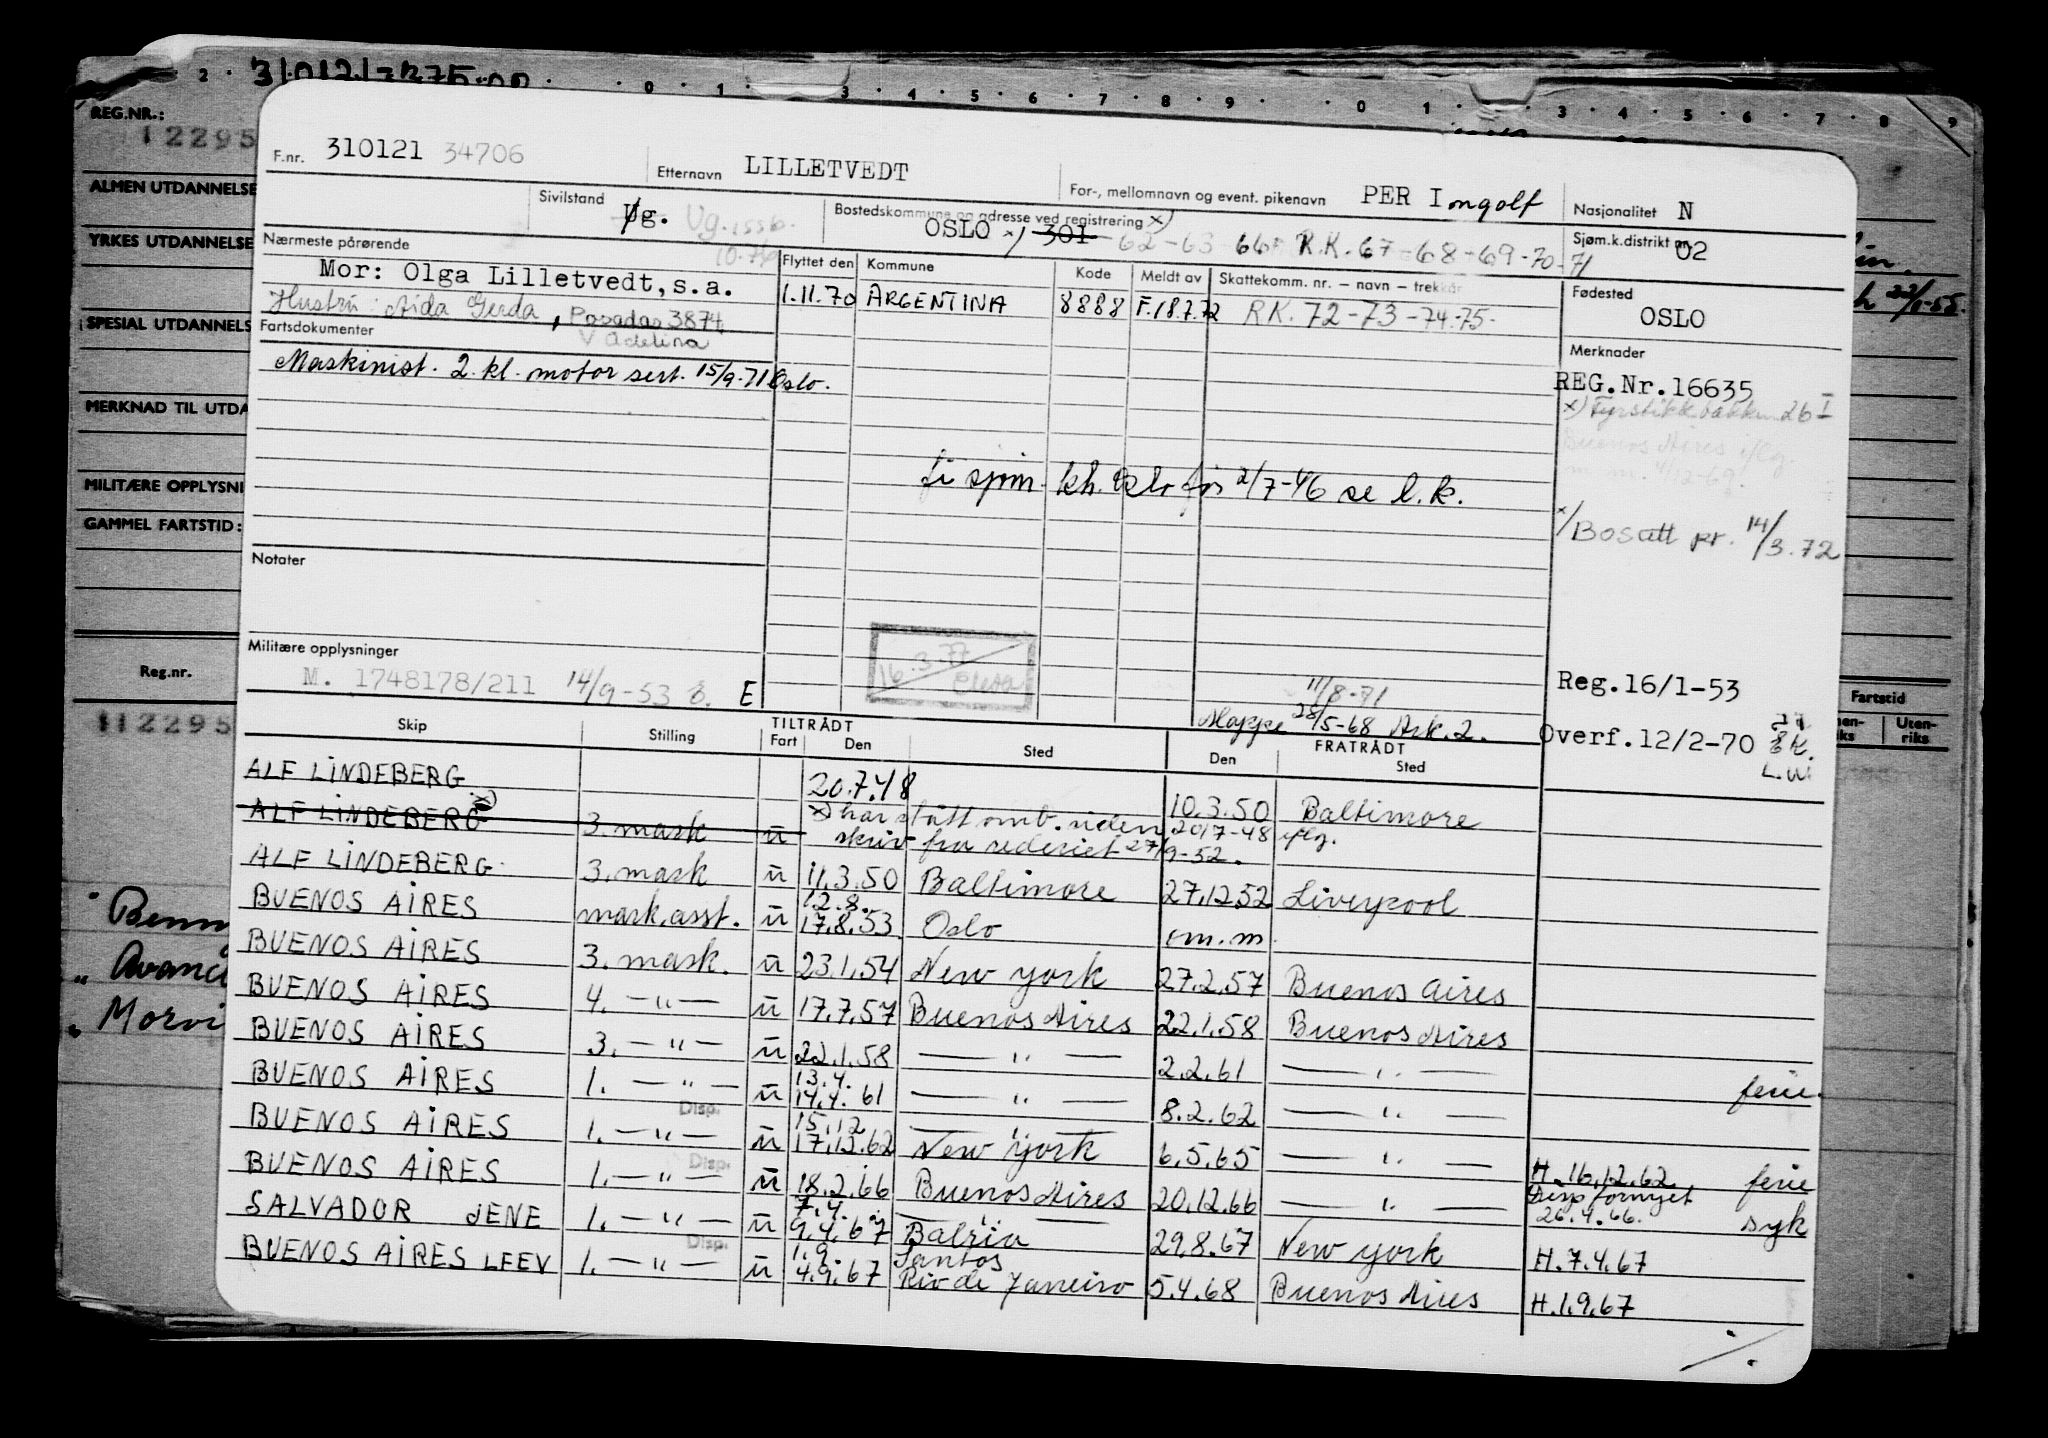 2 · 3101217375.00 · 0 · 1 · 3 · 4 · 5 · 6 · 7 · 8 · 9 · 0 · 1 · 3 · 4 · 5 · 6 · 7 · 8 9
REG.NR.:
12295
ALMEN UTDANNELSE
YRKES UTDANNELSE
SPESIAL UTDANNELS
MERKNAD TIL UTDA
MILITÆRE OPPLYSNI
GAMMEL FARTSTID:
Reg.nr.
112295
Fartstid
Uten-
riks
F.nr. 310121 34706 Etternavn LILLETVEDT For-, mellomnavn og event. pikenavn PER Ingolf Nasjonalitet N
Sivilstand Ug. Vg. Bostedskommune og adresse ved registrering x) Sjøm.k.distrikt nr. 02
OSLO x) 301 62-63 66 R.K. 67-68-69-70-71
Nærmeste pårørende Flyttet den Kommune Kode Meldt av Skattekomm. nr. – navn – trekkår Fødested
Mor: Olga Lilletvedt, s.a. 1.11.70 ARGENTINA 8888 F.18.7.72 RK. 72-73-74-75- OSLO
Hustru: Aida Gerda, Posadas 3874
V Adelina
Fartsdokumenter
Merknader
Maskinist. 2. kl. motor sert. 15/9-71 Oslo.
REG.Nr.16635
x) Fyrstikkbakken 26 I
Buenos Aires i/flg.
m.m. 4/12-69.
sjøm. kh. Oslo før 2/7-46 se l.k.
x/ Bosatt pr. 14/3.72
Notater
16.3.77
Militære opplysninger
M. 1748178/211 14/9-53 E
Reg.16/1-53
11/8-71
Mappe 28/5-68 Ark. 2.
Overf.12/2-70
Skip Stilling TILTRÅDT Fart Den Sted FRATRÅDT Den Sted
ALF LINDEBERG 20.7.48 10.3.50 Baltimore
ALF LINDEBERG x) 3. mask u x) har stått omb. siden 20/7-48 iflg.
skriv fra rederiet 27/9-52.
ALF LINDEBERG 3. mask u 11.3.50 Baltimore 27.12.52 Liverpool
BUENOS AIRES mask. asst. u 12.8. 17.8.53 Oslo m.m.
BUENOS AIRES 3. mask. u 23.1.54 New York 27.2.57 Buenos Aires
BUENOS AIRES 4. — " — u 17.7.57 Buenos Aires 22.1.58 Buenos Aires
BUENOS AIRES 3. — " — u 22.1.58 — " — 2.2.61 — " —
BUENOS AIRES 1. — " — u 13.4. 14.4.61 — " — 8.2.62 — " — ferie.
BUENOS AIRES Disp. 1. — " — u 15.12 17.12.62 — " — New York 6.5.65 — " — H. 16.12.62 ferie
BUENOS AIRES Disp. 1. — " — u 18.2.66 Buenos Aires 20.12.66 — " — Disp fornyet 26.4.66. syk
SALVADOR JENE 1. — " — u 7.4. 9.4.67 — " — 29.8.67 New York H.7.4.67
BUENOS AIRES LEEV Disp. 1. — " — u 1.9. 4.9.67 Santos Rio de Janeiro 5.4.68 Buenos Aires H.1.9.67